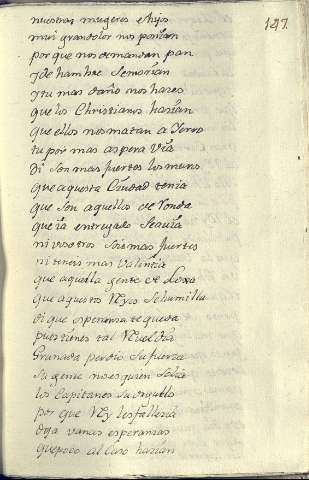 147.
nuestras mugeres e hijos
mui gran dolor nos ponian
por que nos demandan pan
y de hambre se morian
y tu mas daño nos hazes
que los Christianos hazian
que ellos nos matan a Yerro
tu por mas aspera via
di son mas fuertes los muros
que aquesta Ciudad tenia
que son aquellos de Ronda
que ia entregado se avia
ni vosotros sois mas fuertes
ni teneis mas valentia
que aquella gente de Loxa
que aquestos Reyes se humilla
di que esperansa te queda
pues tienes tal Reveldia
Granada perdio su fuersa
su gente no es quien solia
los Capitanes su orgullo
por que Rey les fallecia
dexa vanas esperansas
que poco al Caso hazian